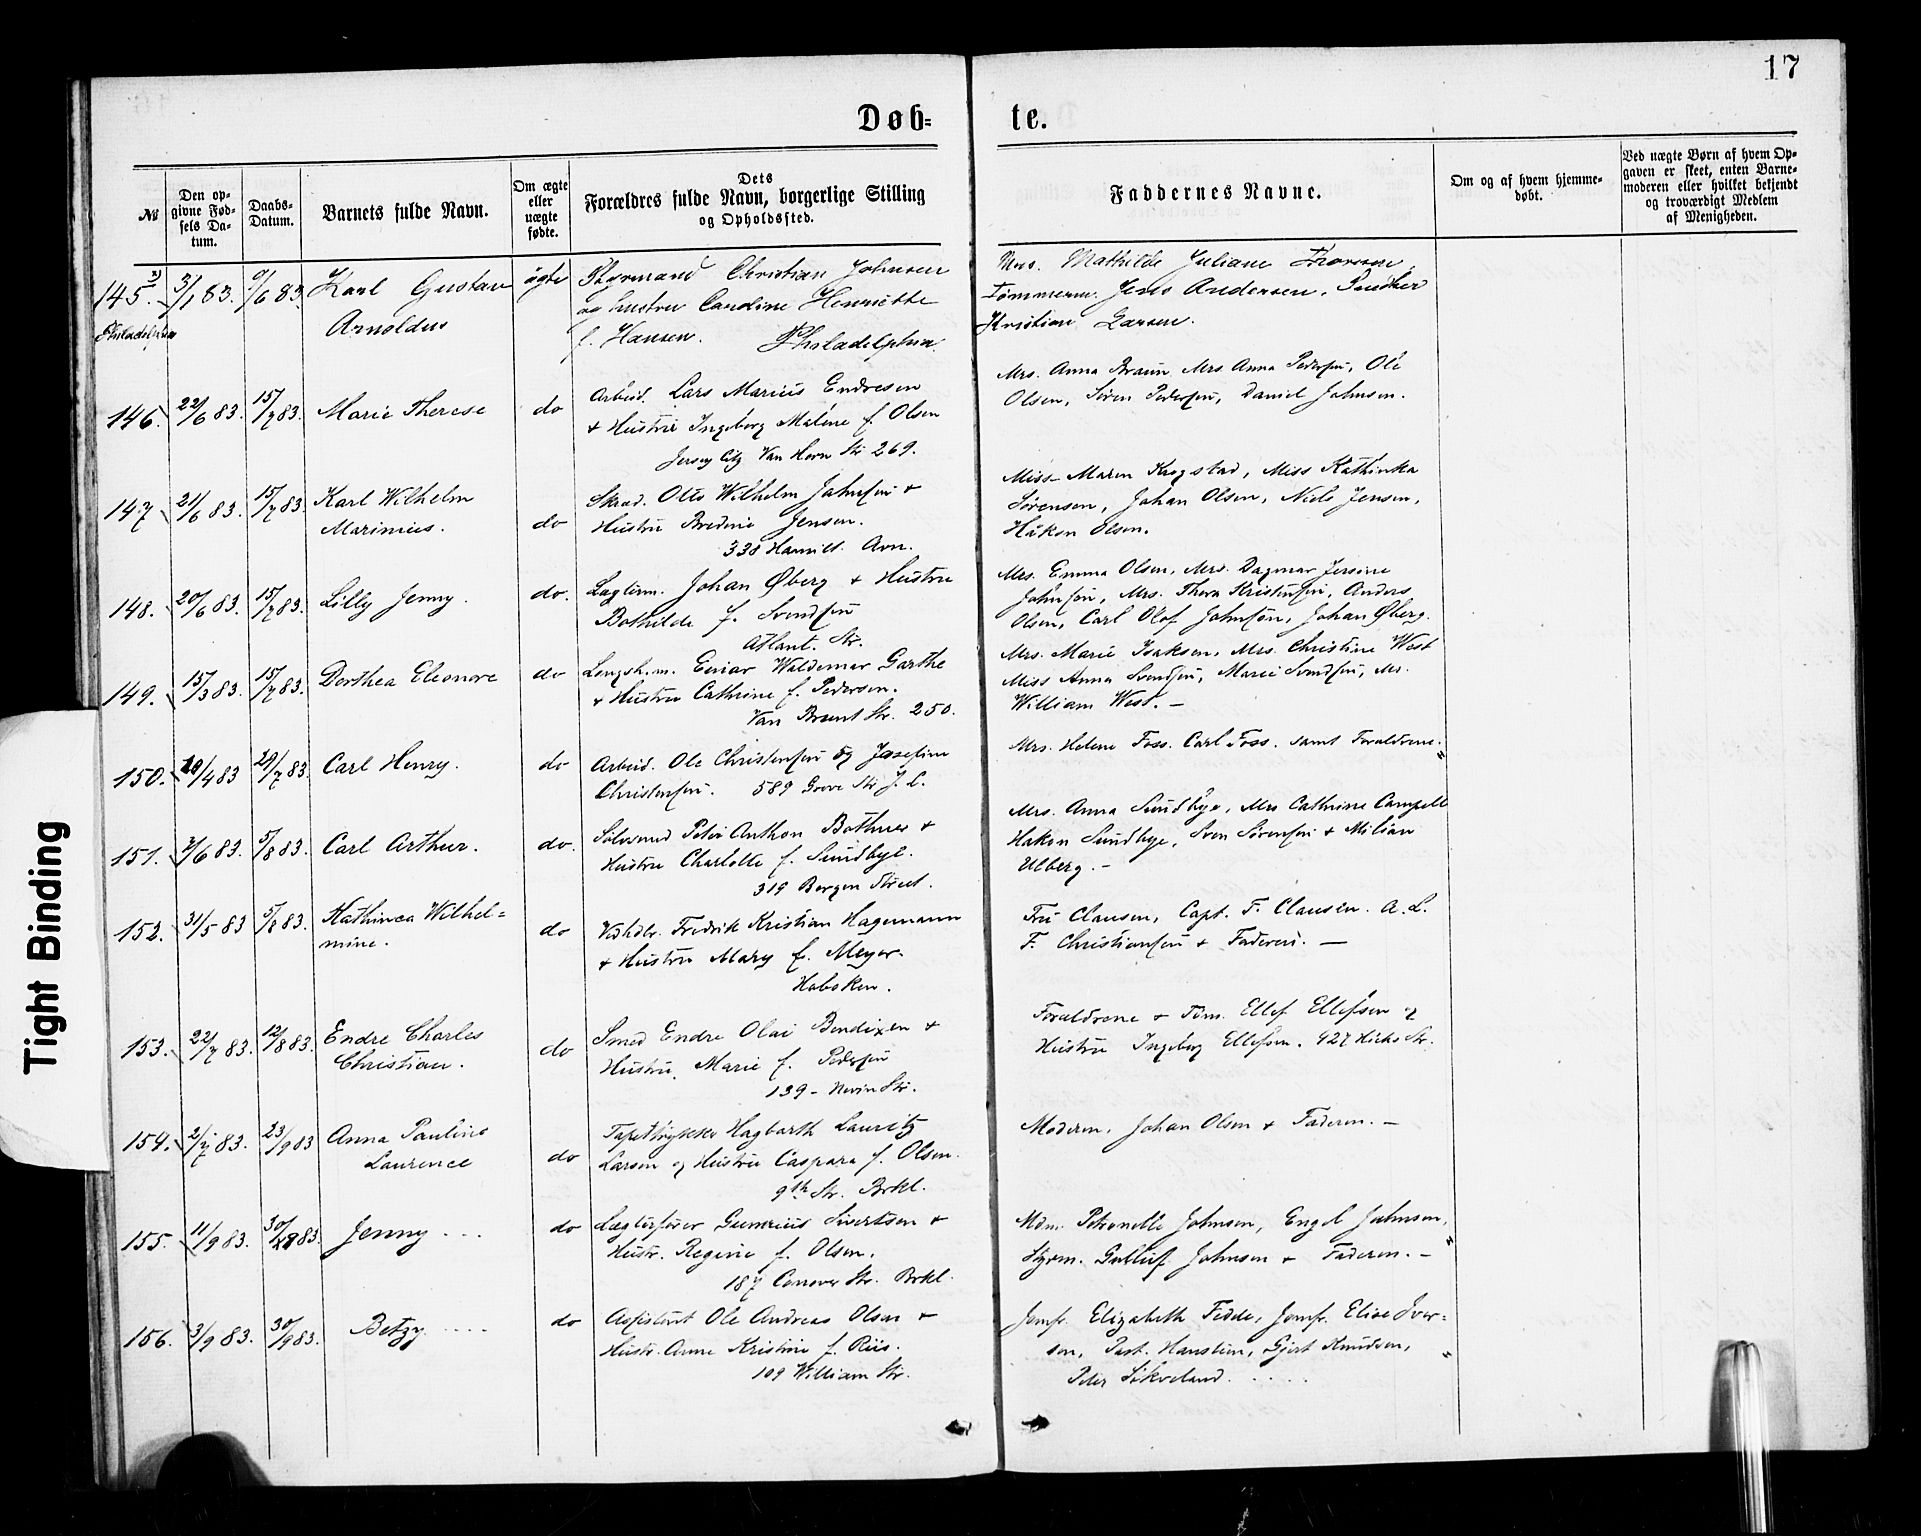 17
Døb=
te.
№
Den op-
givne Fød-
sels Da-
tum.
Daabs-
Datum.
Barnets fulde Navn.
Om ægte
eller
uægte
fødte.
Dets
Forældres fulde Navn, borgerlige Stilling
og Opholdssted.
Faddernes Navne.
Om og af hvem hjemme-
døbt.
Ved uægte Børn af hvem Op-
gaven er skeet, enten Barne-
moderen eller hvilket bekjendt
og troværdigt Medlem
af Menigheden.
145. 3/1 83. 9/6 83. Karl Gustav ägte Styrmand Christian Johnsen
Philadelphia Arnoldus og hustru Caroline Henriette
f. Hansen. Philadelphia.
Mrs. Mathilde Juliane
Tømmerm. Jens Andersen,
Kristian Larsen.
146. 22/6 83. 15/7 83. Marie Therese do Arbeid. Lars Marius Endresen
+ Hustru Ingeborg Malene f. Olsen
Jersey City Van Horn Str 269.
Mrs. Anna Braun, Mrs Anna Pedersen, Ole
Olsen, Søren Pedersen, Daniel Johnsen.
147. 21/6 83. 15/7 83. Karl Wilhelm do Skrad. Otto Wilhelm Johnsen +
Marinius. Hustru Bredine Jensen.
338 Hamilt. Avn.
Miss Maren Krogstad, Miss Kathinka
Sørensen, Johan Olsen, Niels Jensen,
Håkon Olsen.
148. 20/6 83. 15/7 83. Lilly Jenny. do. Lagterm. Johan Øberg + Hustru
Bothilde f. Svendsen
Atlant. Str.
Mrs. Emma Olsen, Mrs. Dagmar Jensine
Johnsen, Mrs. Thora Kristensen, Anders
Olsen, Carl Olof Johnson, Johan Øberg.
149. 15/3 83. 15/7 83. Dorthea Eleonore do Longsh.m. Einar Waldemar Garthe
+ Hustru Cathrine f. Pedersen.
Van Brunt Str. 250.
Mrs. Marie Isaksen, Mrs. Christine West
Miss Anna Svendsen, Marie Svendsen, Mr.
William West. —
150. /4 83 29/7 83. Carl Henry. do Arbeid. Ole Christensen og Josefine
Christensen. 589 Grove Str J. C.
Mrs. Helene Foss. Carl Foss. samt Forældrene.
151. /6 83. 5/8 83. Carl Arthur. do. Sølvsmed Peter Anthon Bothner +
Hustru Charlotte f. Sundbye.
319 Bergen Street.
Mrs. Anna Sundbye, Mrs Cathrine Campell
Hakon Sundbye, Sven Sørensen + Milian
Ulberg. —
152. 31/5 83 5/8 83. Kathinca Wilhel= do Fredrik Kristian Hagemann
mine. + Hustru Mary f. Meyer.
Hoboken.
Fru Clausen, Capt. F. Clausen. A. L.
F. Christiansen + Faderen. —
153. 22/7 83. 12/8 83. Endre Charles do Smed Endre Olai Bendixen +
Christian. Hustru Marie f. Pedersen
139 - Nevin Str.
Foraldrene + Tøm. Ellef Ellefsen og
Hustru Ingeborg Ellefsen. 427 Hicks Str.
154. 2/7 83. 23/9 83 Anna Pauline do Tapettrykker Hagbarth Lauritz
Laurence Larsen og Hustru Caspara f. Olsen.
9th Str. Brkl.
Moderen, Johan Olsen + Faderen. —
155. 11/9 83. 30/9 83. Jenny ... do Lægterfører Gunerius Sivertsen +
Hustr. Regine f. Olsen.
187 Conover Str. Brkl.
Mdm. Petronelle Johnsen, Engel Johnsen,
Styrm. Gulluf Johnsen + Faderen. —
156. 3/9 83. 30/9 83. Betzy .... do Assistent Ole Andreas Olsen +
Hustr. Anne Kristine f. Riis.
109 William Str.
Jomfr. Elizabeth Fedde, Jomfr. Elise Iver-
sen, Past. Hansteen, Gjert Knudsen,
Peter Sikveland. ....
Tight Binding